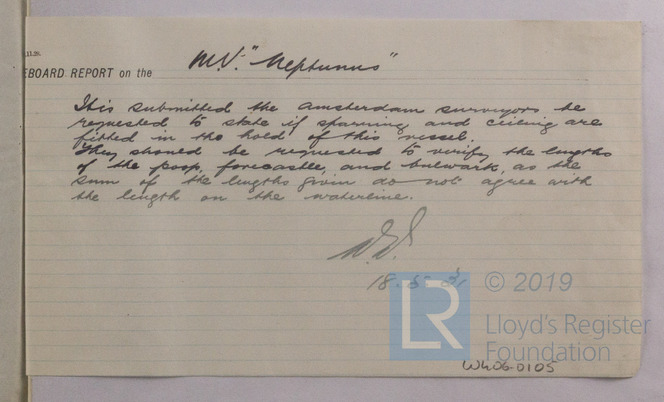 11.28.
EBOARD REPORT on the M.V. "Neptunus"
It is submitted the Amsterdam surveyors be
requested to state if sparring and ceiling are
fitted in the hold of this vessel.
They should be requested to verify the lengths
of the poop, forecastle, and bulwark, as the
sum of the lengths given do not agree with
the length on the waterline.
18.5.31
LR
© 2019
Lloyd's Register
Foundation
W406-0105